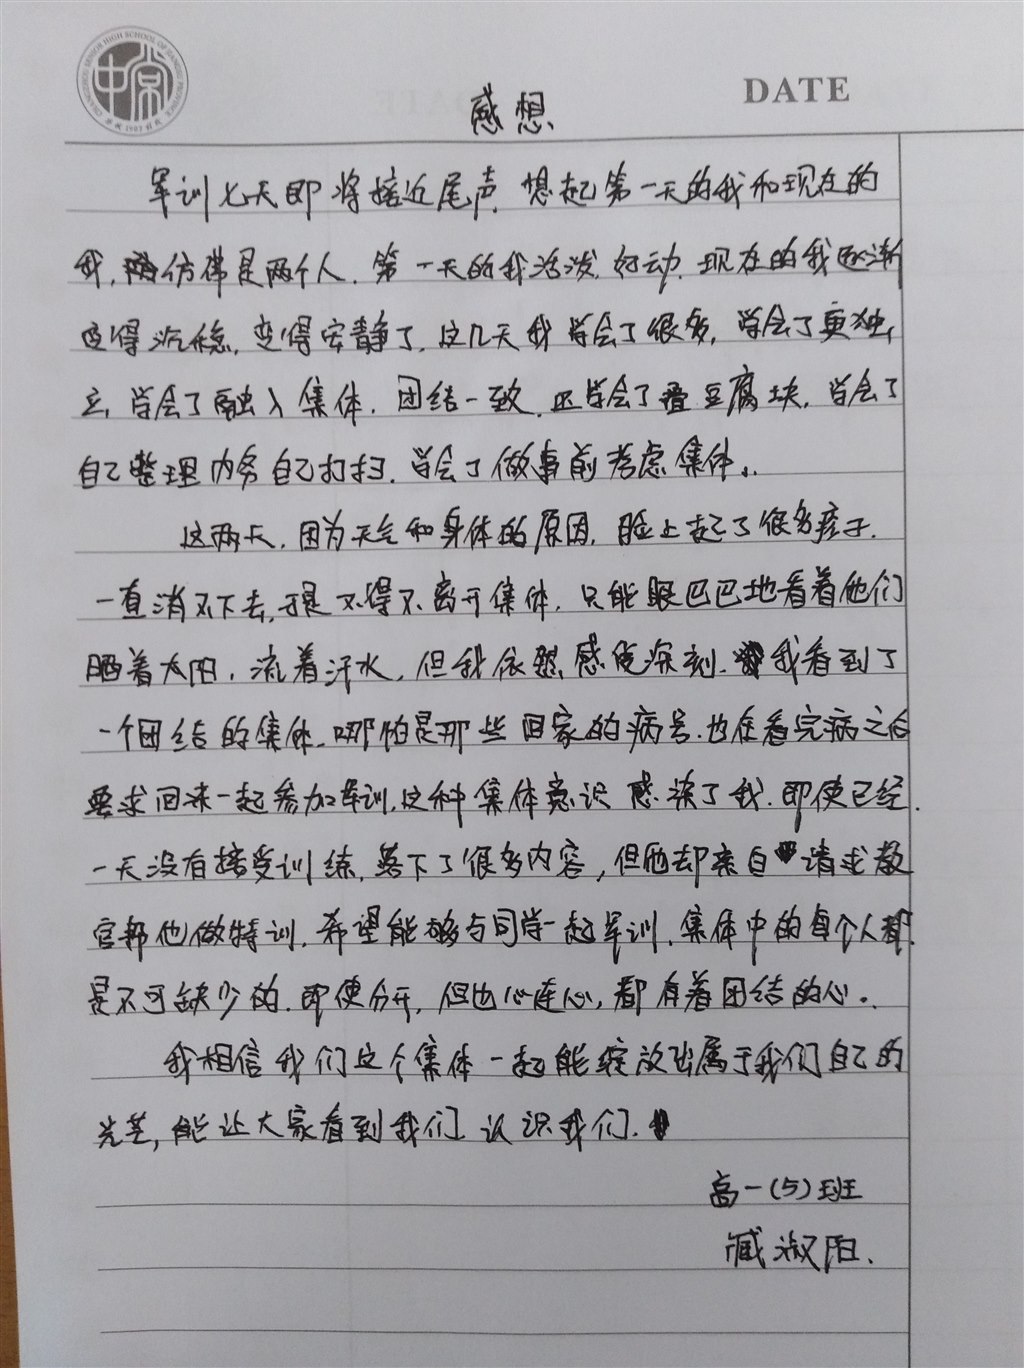 DATE
感想
军训七天即将接近尾声,想起第一天的我和现在的
我,仿佛是两个人.第一天的我活泼.好动.现在的我逐渐
变得沉稳,变得安静了.这几天我学会了很多,学会了更独
立,学会了融入集体.团结一致.还学会了叠豆腐块.学会了
自己整理内务自己打扫.学会了做事前考虑集体..
这两天,因为天气和身体的原因,脸上起了很多疹子.
一直消不下去,于是不得不离开集体.只能眼巴巴地看着他们
晒着太阳.流着汗水,但我依然感觉深刻.我看到了
一个团结的集体.哪怕是那些回家的病号.也在看完病之后
要求回来一起参加军训,这种集体意识感染了我.即使已经
一天没有接受训练,落下了很多内容,但他却亲自请求教
官帮他做特训.希望能够与同学一起军训.集体中的每个人都
是不可缺少的.即使分开,但也心连心,都有着团结的心.
我相信我们这个集体一起能绽放出属于我们自己的
光芒,能让大家看到我们认识我们.
高一(5)班
臧淑阳.